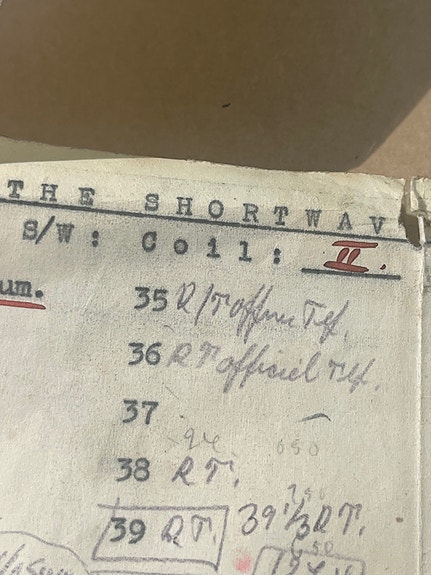 THE SHORTWAV
S/W: Coil: II.
um. 35 R/T offnu Telf.
36 R T officiel Telf.
37
94 650
38 R T.
750
39 R T. 39 1/3 R T.
50